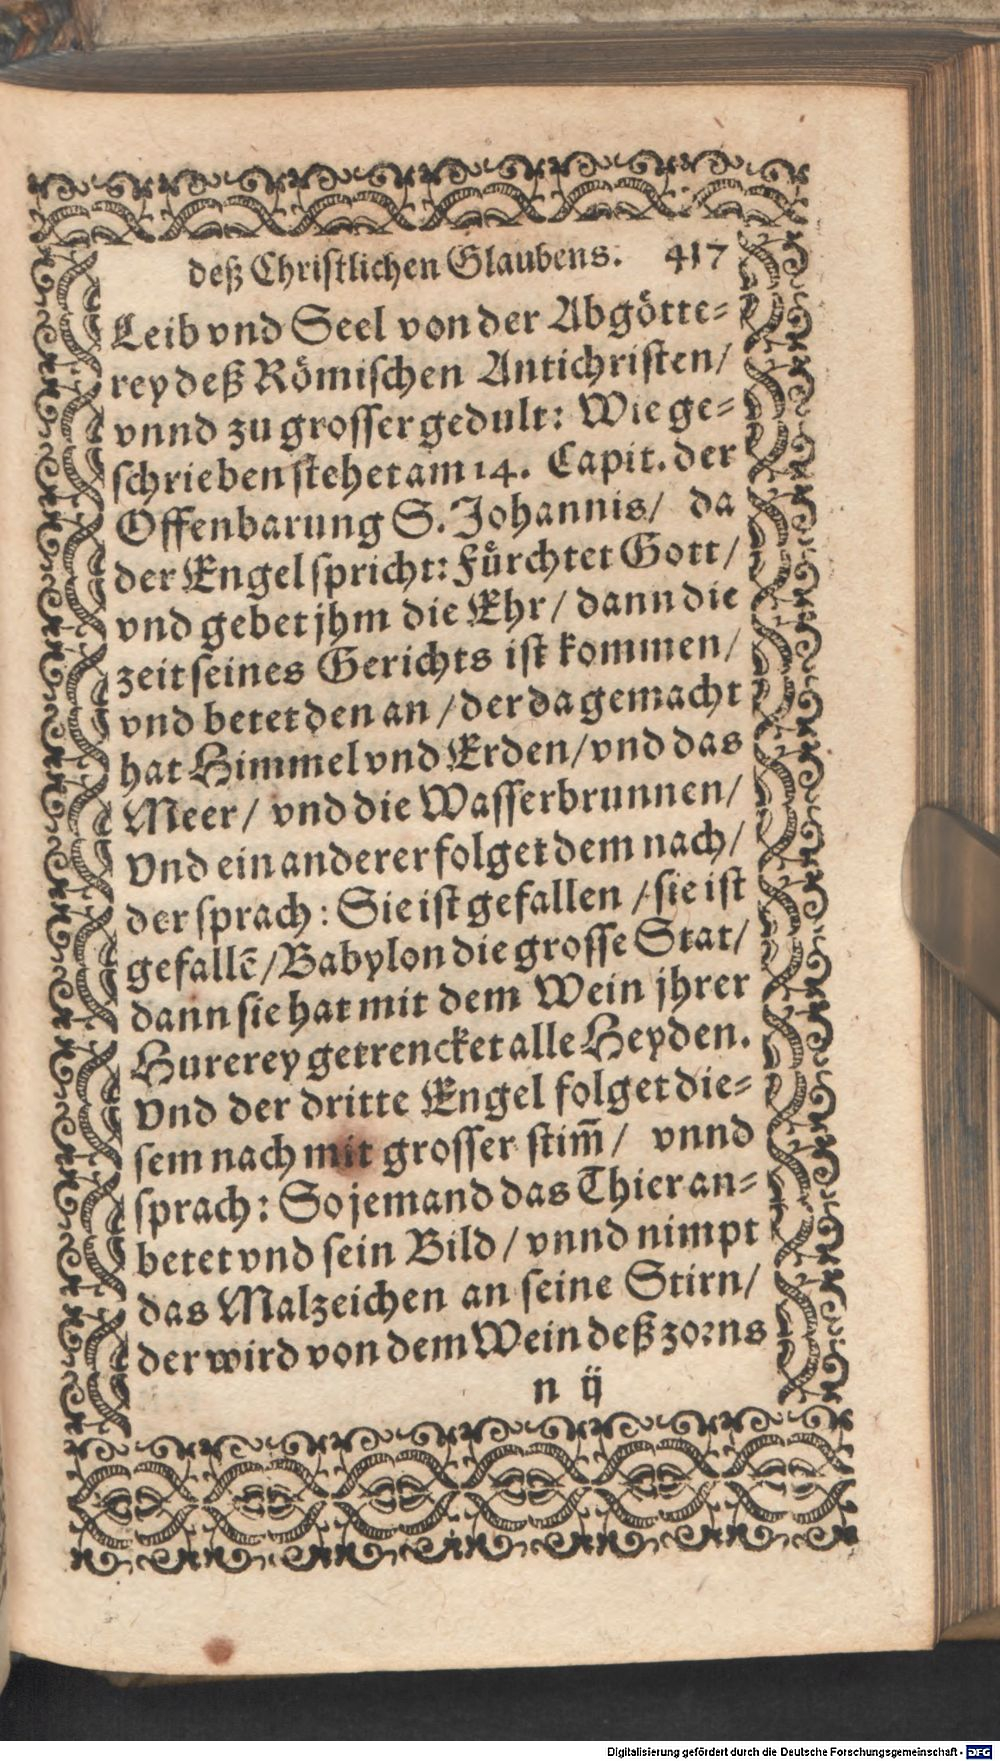 deß Christlichen Glaubens. 417
Leib vnd Seel von der Abgötte-
rey deß Römischen Antichristen/
vnnd zu grosser gedult: Wie ge-
schrieben stehet am 14. Capit. der
Offenbarung S. Johannis/ da
der Engel spricht: Fürchtet Gott/
vnd gebet jhm die Ehr/ dann die
zeit seines Gerichts ist kommen/
vnd betet den an/ der da gemacht
hat Himmel vnd Erden/ vnd das
Meer/ vnd die Wasserbrunnen/
Vnd ein anderer folget dem nach/
der sprach: Sie ist gefallen/ sie ist
gefallē/ Babylon die grosse Stat/
dann sie hat mit dem Wein jhrer
Hurerey getrencket alle Heyden.
Vnd der dritte Engel folget die-
sem nach mit grosser stim̄/ vnnd
sprach: So jemand das Thier an-
betet vnd sein Bild/ vnnd nimpt
das Malzeichen an seine Stirn/
der wird von dem Wein deß zorns
n ij
Digitalisierung gefördert durch die Deutsche Forschungsgemeinschaft - DFG